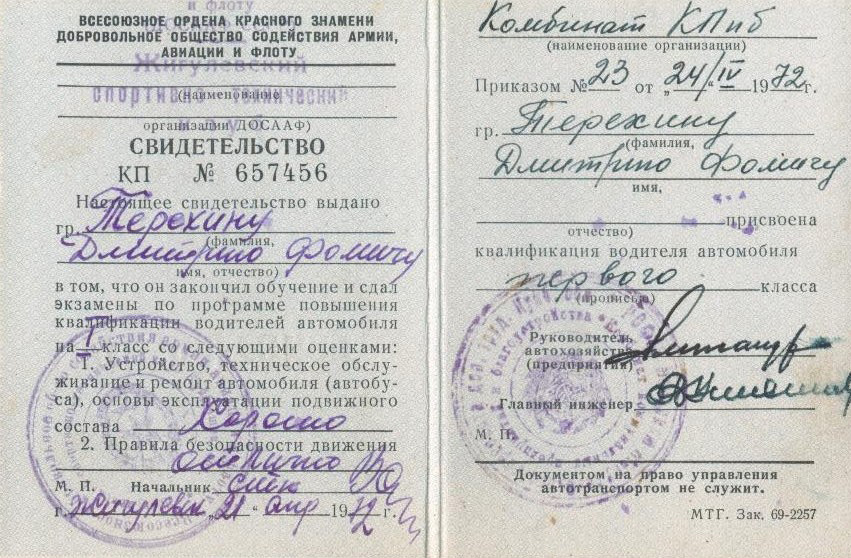 и флоту
ВСЕСОЮЗНОЕ ОРДЕНА КРАСНОГО ЗНАМЕНИ
ДОБРОВОЛЬНОЕ ОБЩЕСТВО СОДЕЙСТВИЯ АРМИИ,
АВИАЦИИ И ФЛОТУ
Жигулевский
спортивно технический
(наименование
клуб
организации ДОСААФ)
СВИДЕТЕЛЬСТВО
КП № 657456
Настоящее свидетельство выдано
гр. Терехину
(фамилия,
Дмитрию Фомичу
имя, отчество)
в том, что он закончил обучение и сдал
экзамены по программе повышения
квалификации водителей автомобиля
на I класс со следующими оценками:
1. Устройство, техническое обслу-
живание и ремонт автомобиля (автобу-
са), основы эксплуатации подвижного
состава Хорошо
2. Правила безопасности движения
отлично
М. П. Начальник стк
г. Жигулевск „21“ апр 1972 г.
Комбинат КПиб
(наименование организации)
Приказом № 23 от „24/“ IV 1972 г.
гр. Терехину
(фамилия,
Дмитрию Фомичу
имя,
отчество) присвоена
квалификация водителя автомобиля
первого класса
(прописью)
Руководитель
автохозяйства
(предприятия)
Главный инженер
М. П.
Документом на право управления
автотранспортом не служит.
МТГ. Зак. 69-2257